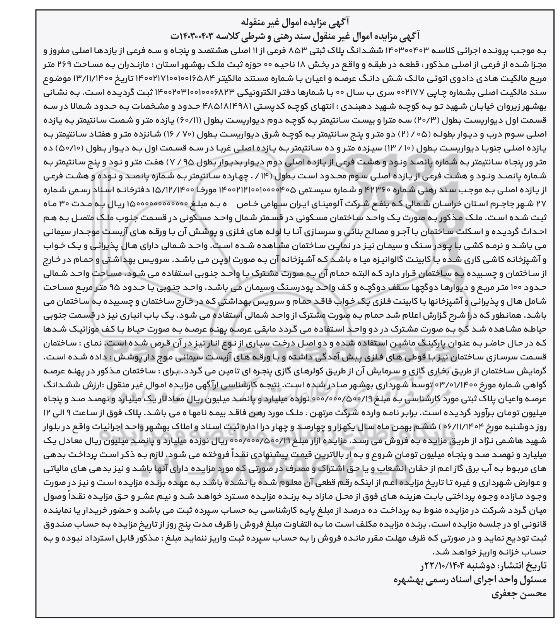 آگهی مزایده اموال غیر منقوله
آگهی مزایده اموال غیر منقول سند رهنی و شرطی کلاسه ۱۴۰۳۰۰۴۰۳ت
به موجب پرونده اجرائی کلاسه ۱۴۰۳۰۰۴۰۳ ششدانگ پلاک ثبتی ۸۵۳ فرعی از ۱۱ اصلی هشتصد و پنجاه و سه فرعی از یازدها اصلی مفروز و
مجزا شده از فرعی از اصلی مذکور ، قطعه در طبقه و واقع در بخش ۱۸ ناحیه ۰۰ حوزه ثبت ملک بهشهر استان : مازندران به مساحت ۲۶۹ متر
مربع مالکیت هادی دادوی اتوئی مالک شش دانگ عرصه و اعیان با شماره مستند مالکیتر ۱۴۰۰۲۱۷۱۰۰۱۰۰۱۶۵۸۴ تاریخ ۱۴۰۰/۱۱/۱۳ موضوع
سند مالکیت اصلی بشماره چاپی ۰۰۲۱۷۷ سری ب سال ۰۰ با شمارها دفتر الکترونیکی ۱۴۰۰۲۰۳۱۰۰۱۰۰۰۶۸۲۳ ثبت گردیده است. به نشانی
بهشهر زیروان خیابان شهید تو به کوچه شهید دهبندی : انتهای کوچه کدپستی ۴۸۵۱۸۱۴۹۸۱ حدود و مشخصات به حدود شمالا در سه
قسمت اول دیواریست بطول (۲۰/۳) سه مترا و بیست سانتیمتر به کوچه دوم دیواریست بطول (۶۰/۱۱) یازده متر و شصت سانتیمتر به یازده
اصلی سوم درب و دیوار بطوله (۰۵ / ۲) دو متر و پنج سانتیمتر به کوچه شرق دیواریست بطول (۷۰ / ۱۶) شانزده متر و هفتاد سانتیمتر به
یازده اصلی جنوبا دیواریست بطول (۱۰ / ۱۳) سیزده متر و ده سانتیمتر به یازده اصلی غربا در سه قسمت اول به دیوار بطول (۵۰/۱۰) ده
متر و پنجاه سانتیمتر به شماره پانصد ونود و هشت فرعی از یازده اصلی دوم دیوار بدیوار بطول ۹۵ / ۷) هفت متر و نود و پنج سانتیمتر به
شماره پانصد ونود و هشت فرعی از یازده اصلی سوم محدود است بطول (۱۴ / . چهارده سانتیمتر به شماره پانصد و نوده و هشت فرعی
از یازده اصلی به موجب سند رهنی شماره ۴۲۳۶۰ و شماره سیستمی ۱۴۰۰۲۱۲۱۰۰۱۰۰۰۴۰۵ مورخا ۱۴۰۰/۱۲/۱۵ دفترخانه اسناد رسمی شماره
۲۷ شهر جاجرم استان خراسان شمالی که بنفع شرکت آلومینای ایران سهامی خاص
ثبت شده است. ملک مذکور به صورت یک واحد ساختمان مسکونی در قسمتر شمال واحد مسکونی در قسمت جنوب ملک متصل به هم
احداث گردیده و اسکلت ساختمان با آجر و مصالح بنائی و سرسازی آنا با لوله های فلزی و پوشش آن با ورقه های آزبست موجدار سیمانی
می باشد و نرمه کشی با پودر سنگ و سیمان نیز در نماین ساختمان مشاهده شده است. واحد شمالی دارای هال پذیرائی و یک خواب
و آشپزخانه کاشی کاری شده با کابینت گالوانیزه میا باشد. که آشپزخانه آن به صورت اوپن می باشد. سرویس بهداشتی و حمام در خارج
از ساختمان و چسبیده به ساختمان قرار دارد که البته حمام آن به صورت مشترک با واحد جنوبی استفاده می شود. مساحت واحد شمالی
حدود ۱۰۰ متر مربع و دیوارها دوگچها سقف دوگچه و کف واحد پودرسنگ وسیمان می باشد. واحد جنوبی با حدود ۹۵ متر مربع مساحت
شامل هال و پذیرائی و آشپزخانها با کابینت فلزی یک خواب فاقد حمام و سرویس بهداشتی که در خارج ساختمان و چسبیده به ساختمان می
باشد. همانطور که در شرح گزارش اعلام شد حمام به صورت مشترک از واحد شمالی استفاده می شود. یک باب انباری نیز در قسمت جنوبی
حیاطه مشاهده شد که به صورت مشترک در دو واحد استفاده می گردد مابقی عرصه پهنه عرصه به صورت حیاط با کف موزائیک شدها
که در حال حاضر به عنوان پارکینگ ماشین استفاده شده و دو اصل درخت سیاری از نوع انار نیز در آن قرض شده است. نمای : ساختمان
قسمت سرسازی ساختمان نیز با قوطی های فلزی پیش آمدگی داشته و با ورقه های آزبست سیمانی موج دار پوشش : داده شده است.
گرمایش ساختمان از طریق بخاری گازی و سرمایش آن از طریق کولرهای گازی پنجره ای تامین می گردد. برای : ساختمان مذکور در پهنه عرصه
گواهی شماره مورخ ۱۴۰۰/۰۱/۰۳ توسط شهرداری بهشهر صادر شده است. نتیجه کارشناسی ارآگهی مزایده اموال غیر منقول :ارزش ششدانگ
عرصه واعیان پلاک ثبتی مورد کارشناسی به مبلغ
میلیون تومان برآورد گردیده است. برابر نامه وارده شرکت مرتهن ، ملک مورد رهن فاقد بیمه نامها ه می باشد. پلاک فوق از ساعت ۹ الی ۱۲
روز دوشنبه مورخ ۱۴۰۴/۱۱/۰۶ ششم بهمن ماه سال یکهزار و چهارصد و چهار درا داره ثبت اسناد و املاک بهشهر واحد اجرائیات واقع در بلوار
شهید هاشمی نژاد از طریق مزایده به فروش می رسد. مزایده ازار مبلغ
میلیارد و نهصد صد و پنجاه میلیون تومان شروع و به ار بالاترین قیمت پیشنهادی نقداً فروخته می شود. لازم به ذکر است پرداخت بدهی
های مربوط به آب برق گاز اعم از حقان انشعاب و یا حق اشتراک و مصرف در صورتی که مورد مزایده دارای آنها باشد و نیز بدهی های مالیاتی
و عوارض شهرداری و غیره تا تاریخ مزایده اعم از اینکه رقم قطعی آن معلوم شده یا نشده باشد به عهده برنده مزایده است و نیز در صورت
وجود مازاده وجوه پرداختی بابت هزینه های فوق از محل مازاد به برنده مزایده مسترد خواهد شد و نیم عشر و حق مزایده نقداً وصول
میگر گردد شرکت در مزایده منوط به پرداخت ده درصد از مبلغ پایه کارشناسی به حساب سپرده ثبت می باشد و حضور خریدار یا نماینده
قانونی او در جلسه مزایده است. برنده مزایده مکلف است ما به التفاوت مبلغ فروش را ظرف مدت پنج روز از تاریخ مزایده به حساب صندوق
ثبت تودیع نماید و در صورتی که ظرف مهلت مقرر مانده فروش را به حساب سپرده ثبت واریز ننماید مبلغ : مذکور قابل استرداد نبوده و به
حساب خزانه واریز خواهد شد.
تاریخ انتشار: دوشنبه ۱۴۰۴/۱۰/۲۲ر
مسئول واحد اجرای اسناد رسمی بهشهره
محسن جعفری